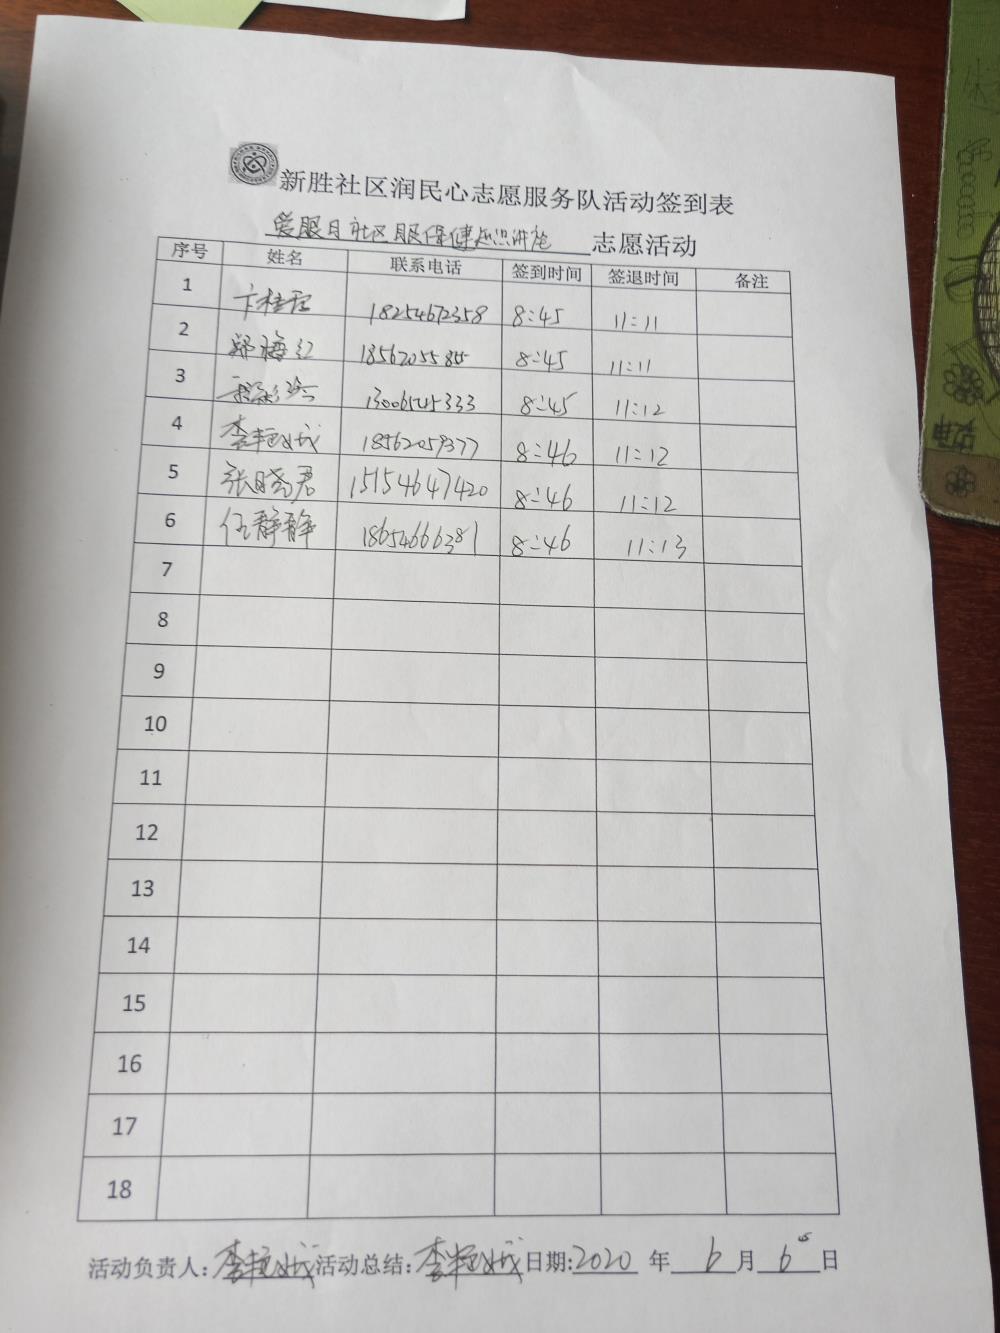 新胜社区润民心志愿服务队活动签到表
爱眼日社区眼保健知识讲座 志愿活动
序号 姓名 联系电话 签到时间 签退时间 备注
1 卞桂君 18254672358 8:45 11:11
2 郑梅红 8:45 11:11
3 13006545333 8:45 11:12
4 李艳城 18562059377 8:46 11:12
5 张晓君 15154647420 8:46 11:12
6 任静静 18654666381 8:46 11:13
7
8
9
10
11
12
13
14
15
16
17
18
活动负责人:李艳城 活动总结:李艳城 日期:2020 年 6 月 6 日